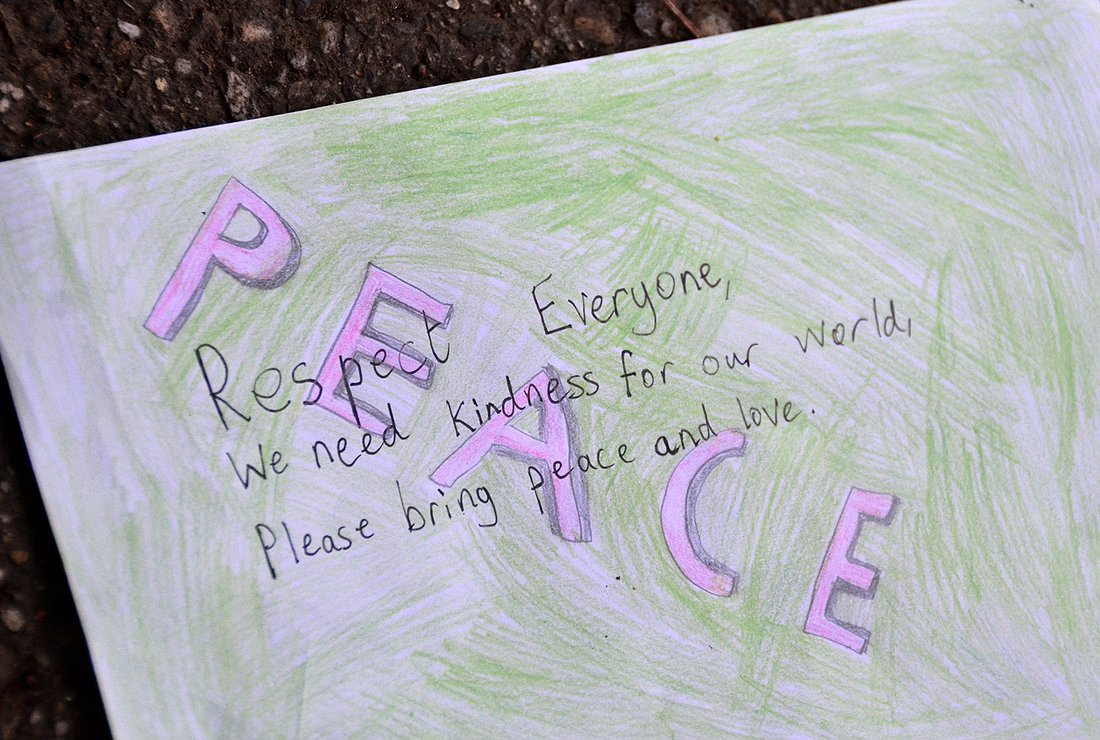 PEACE
Respect Everyone,
We need kindness for our world,
Please bring peace and love.